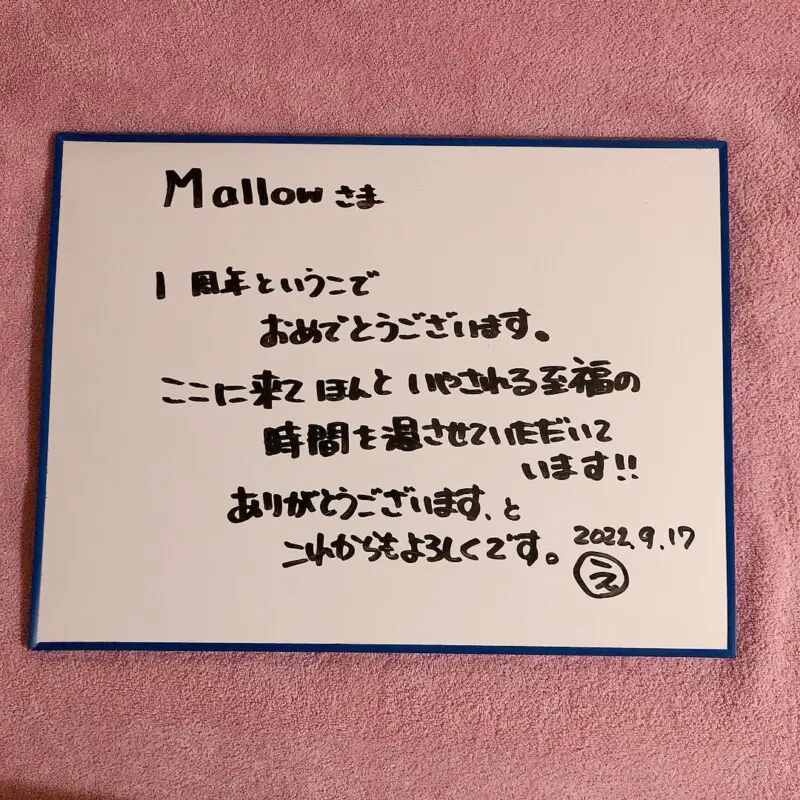 Mallow さま
1周年というこで
おめでとうございます。
ここに来て ほんと いやされる至福の
時間を過させていただいて
います!!
ありがとうございます、と
これからもよろしくです。
2022.9.17
え